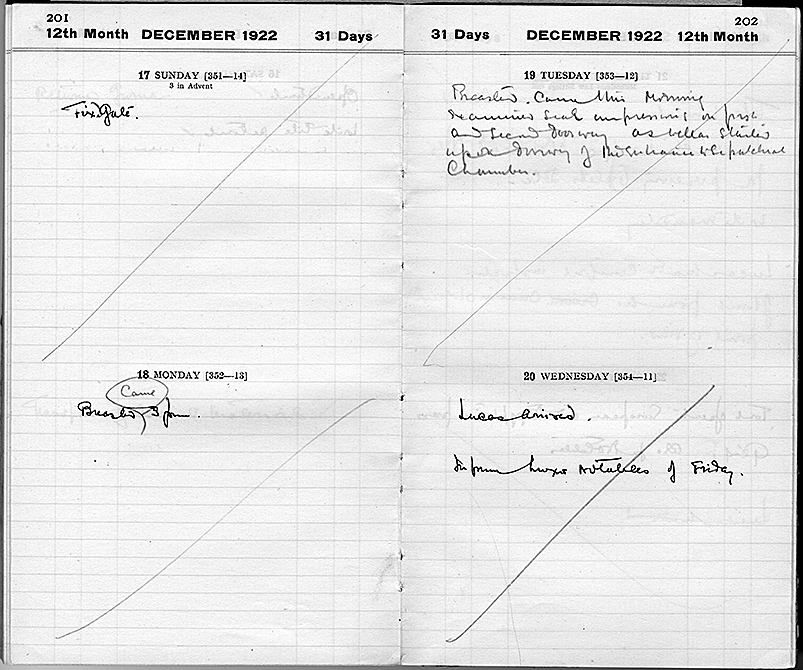 201
12th Month DECEMBER 1922 31 Days
17 SUNDAY [351—14]
3 in Advent
Fixed Gate.
18 MONDAY [352—13]
Came
Breasted 3 pm.
202
31 Days DECEMBER 1922 12th Month
19 TUESDAY [353—12]
Breasted. Came this Morning
examined seal impressions on first
and second doorway as well as
upon doorway of the entrance to Sepulchral
Chamber.
20 WEDNESDAY [354—11]
Lucas arrived.
Inform Luxor Notables of Friday.